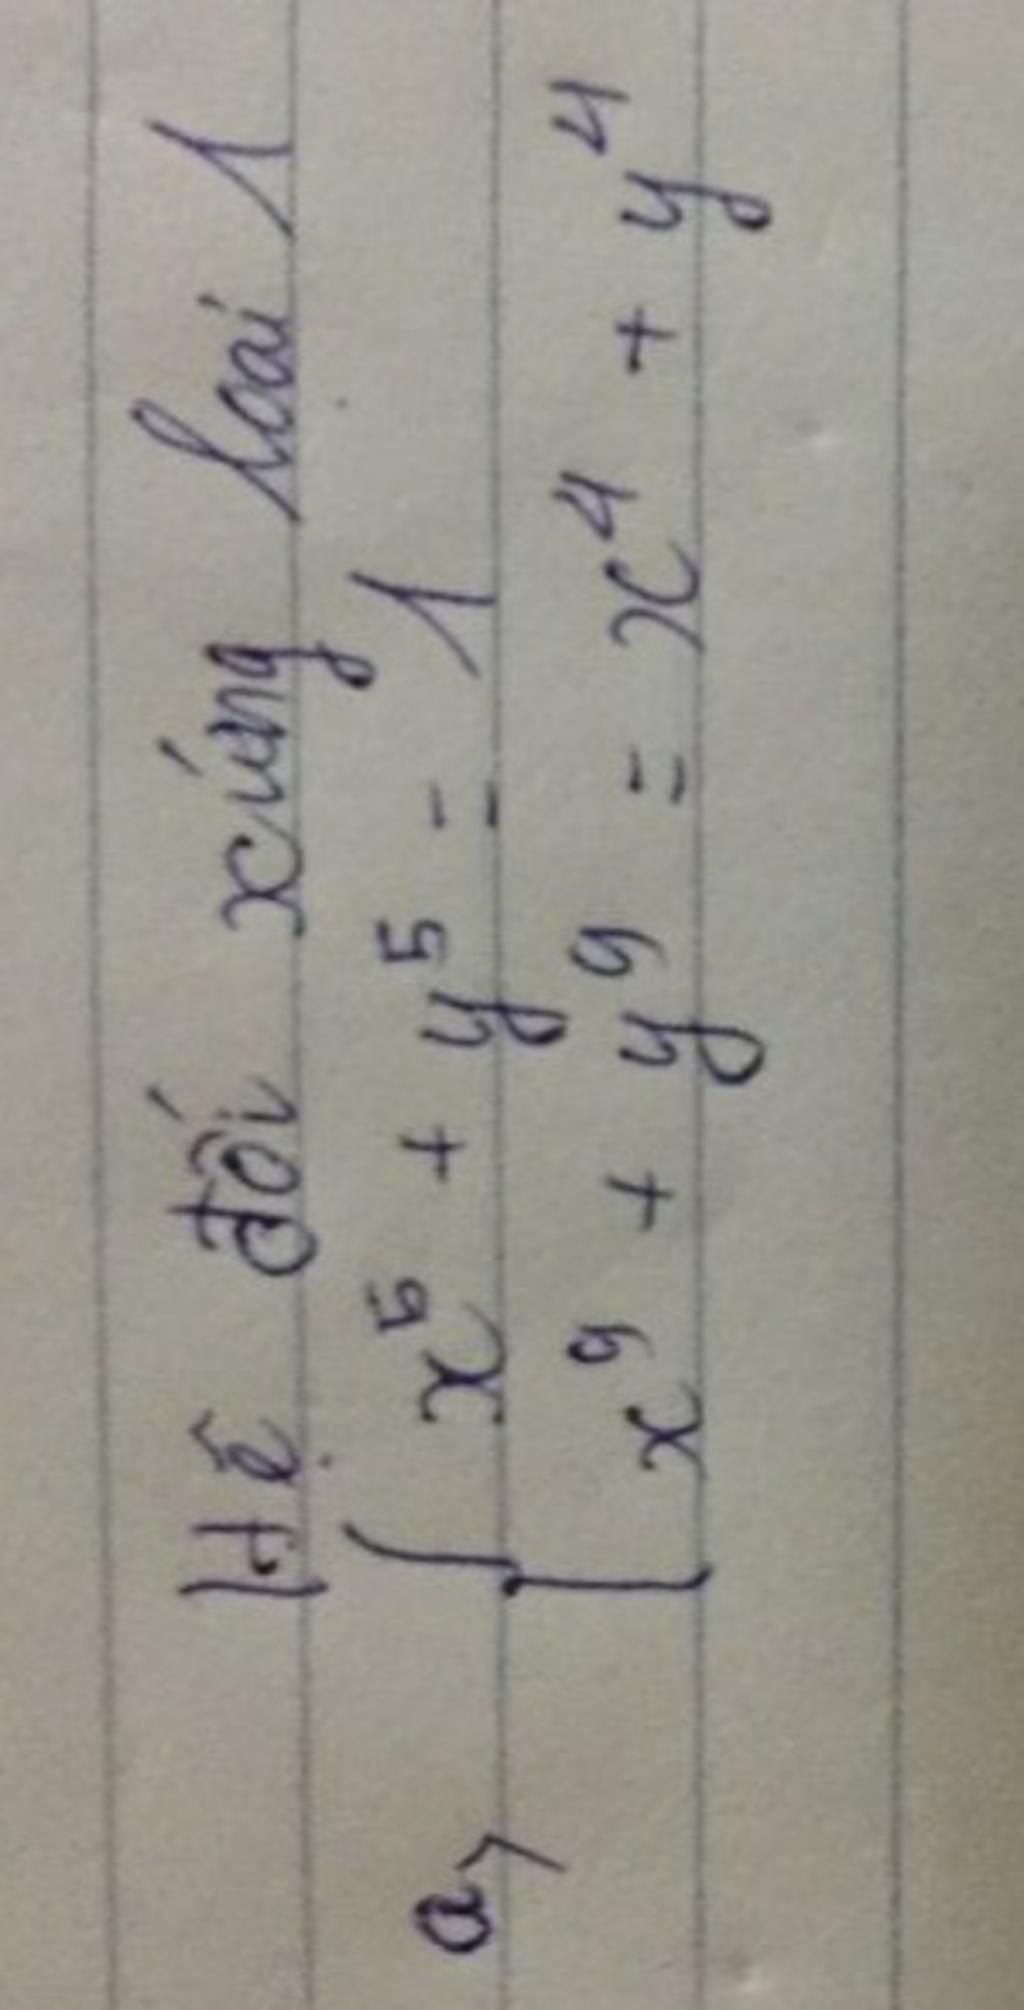 Hệ đối xứng loại 1
a, { x⁵ + y⁵ = 1
x⁹ + y⁹ = x⁴ + y⁴